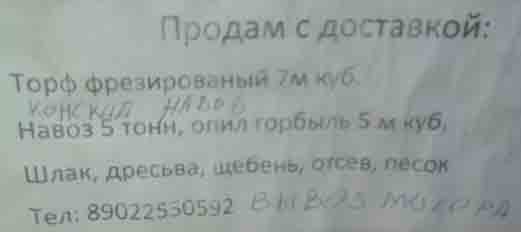 Продам с доставкой:
Торф фрезированый 7м куб.
КОНСКИЙ НАВОЗ
Навоз 5 тонн, опил горбыль 5 м куб,
Шлак, дресьва, щебень, отсев, песок
Тел: 89022550592 ВЫВОЗ МУСОРА